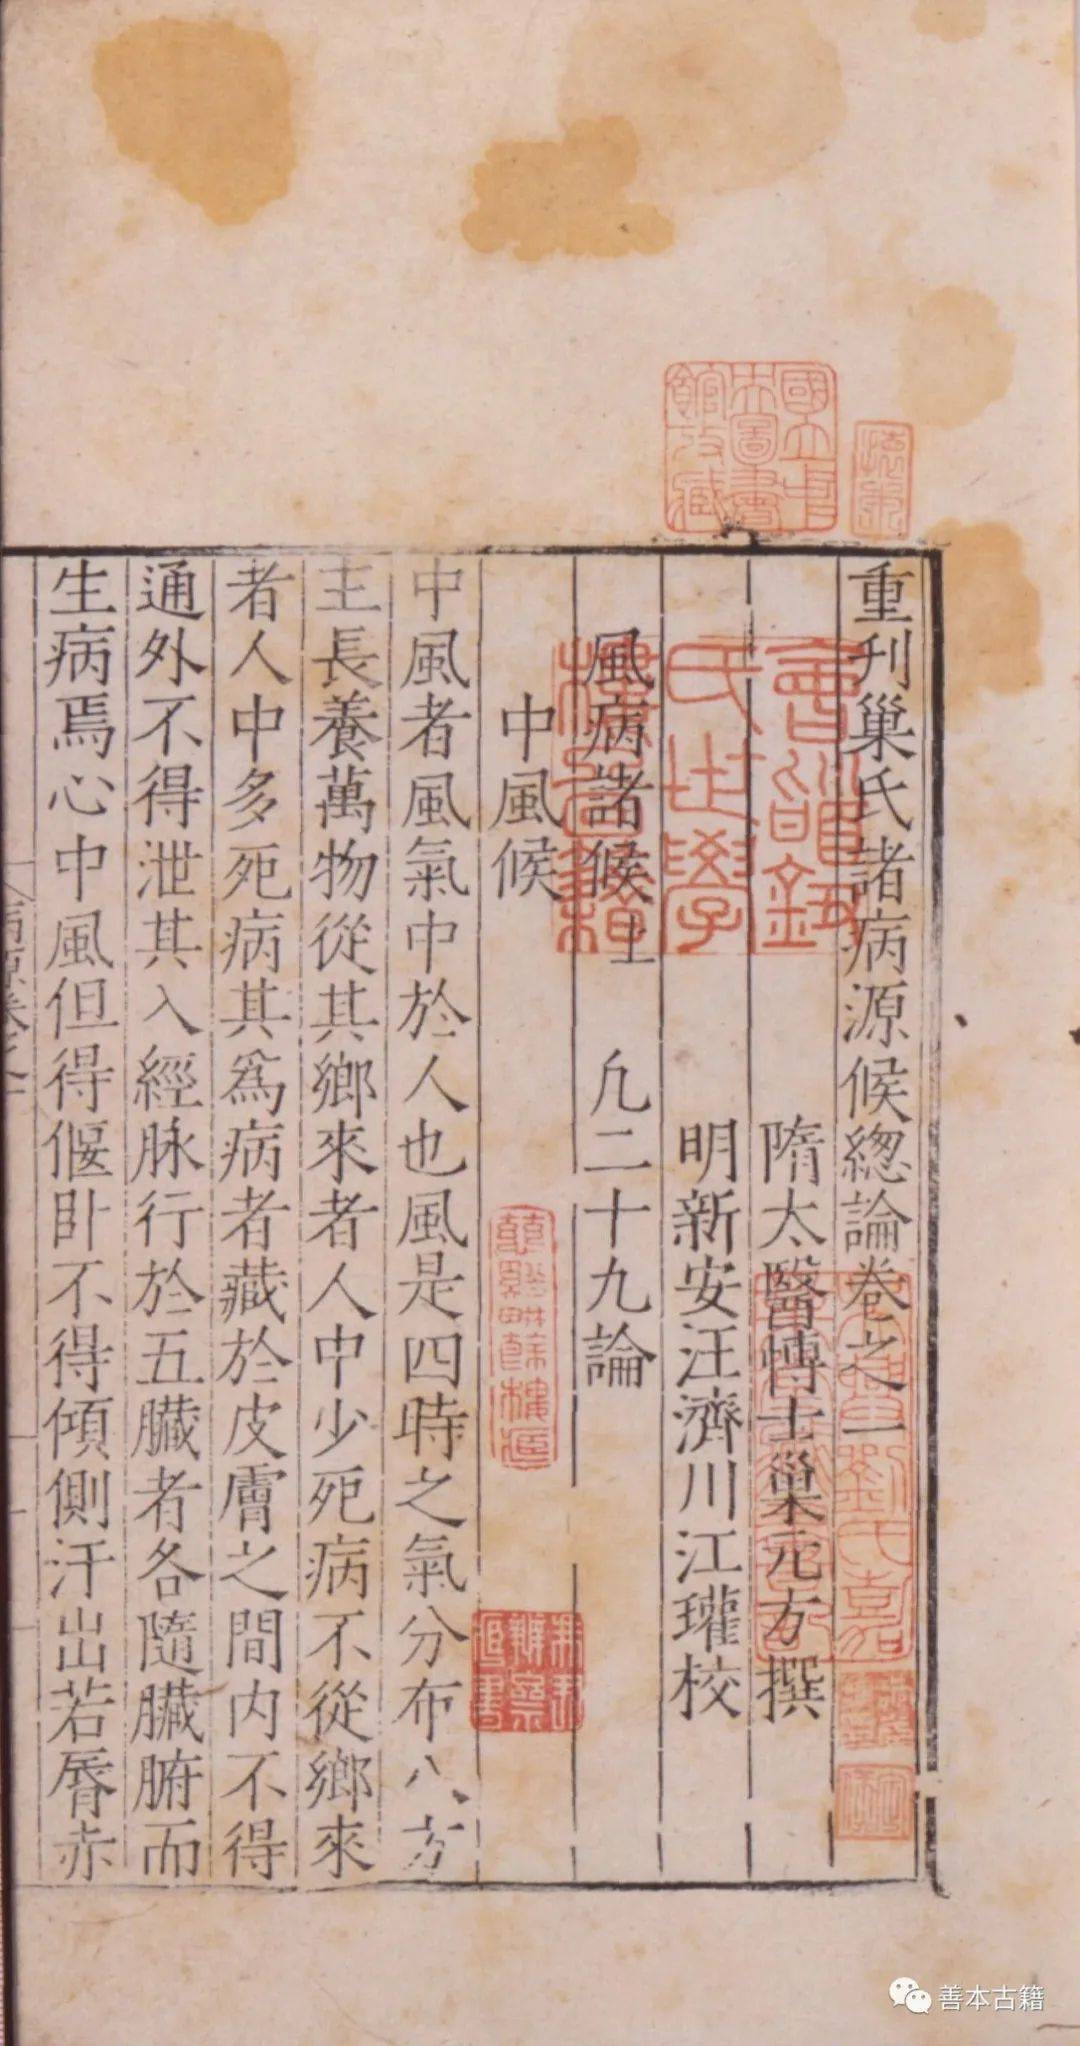 重刊巢氏諸病源候總論卷之一
隋太醫博士巢元方撰
明新安汪濟川江瓘校
風病諸候上 凢二十九論
中風候
中風者風氣中於人也風是四時之氣分布八方
主長養萬物從其鄉來者人中少死病不從鄉來
者人中多死病其爲病者藏於皮膚之間内不得
通外不得泄其入經脉行於五臟者各隨臟腑而
生病焉心中風但得偃卧不得傾側汗出若脣赤
病源卷之一
國立中
央圖書
館收藏
會稽鈕
氏世學
樓圖籍
善本古籍